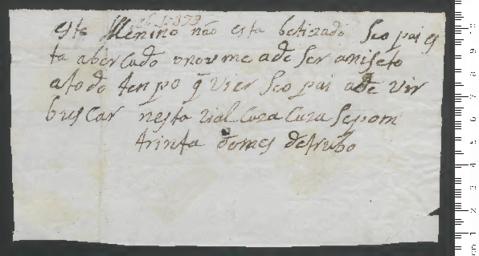 este Menino não esta betizado Seo pai es
ta abercado o nou me ade Ser aniseto
a todo tempo q̃ vier Seo pai ade vir
buscar nesta rial Caza Caza Sepom
trinta do mes